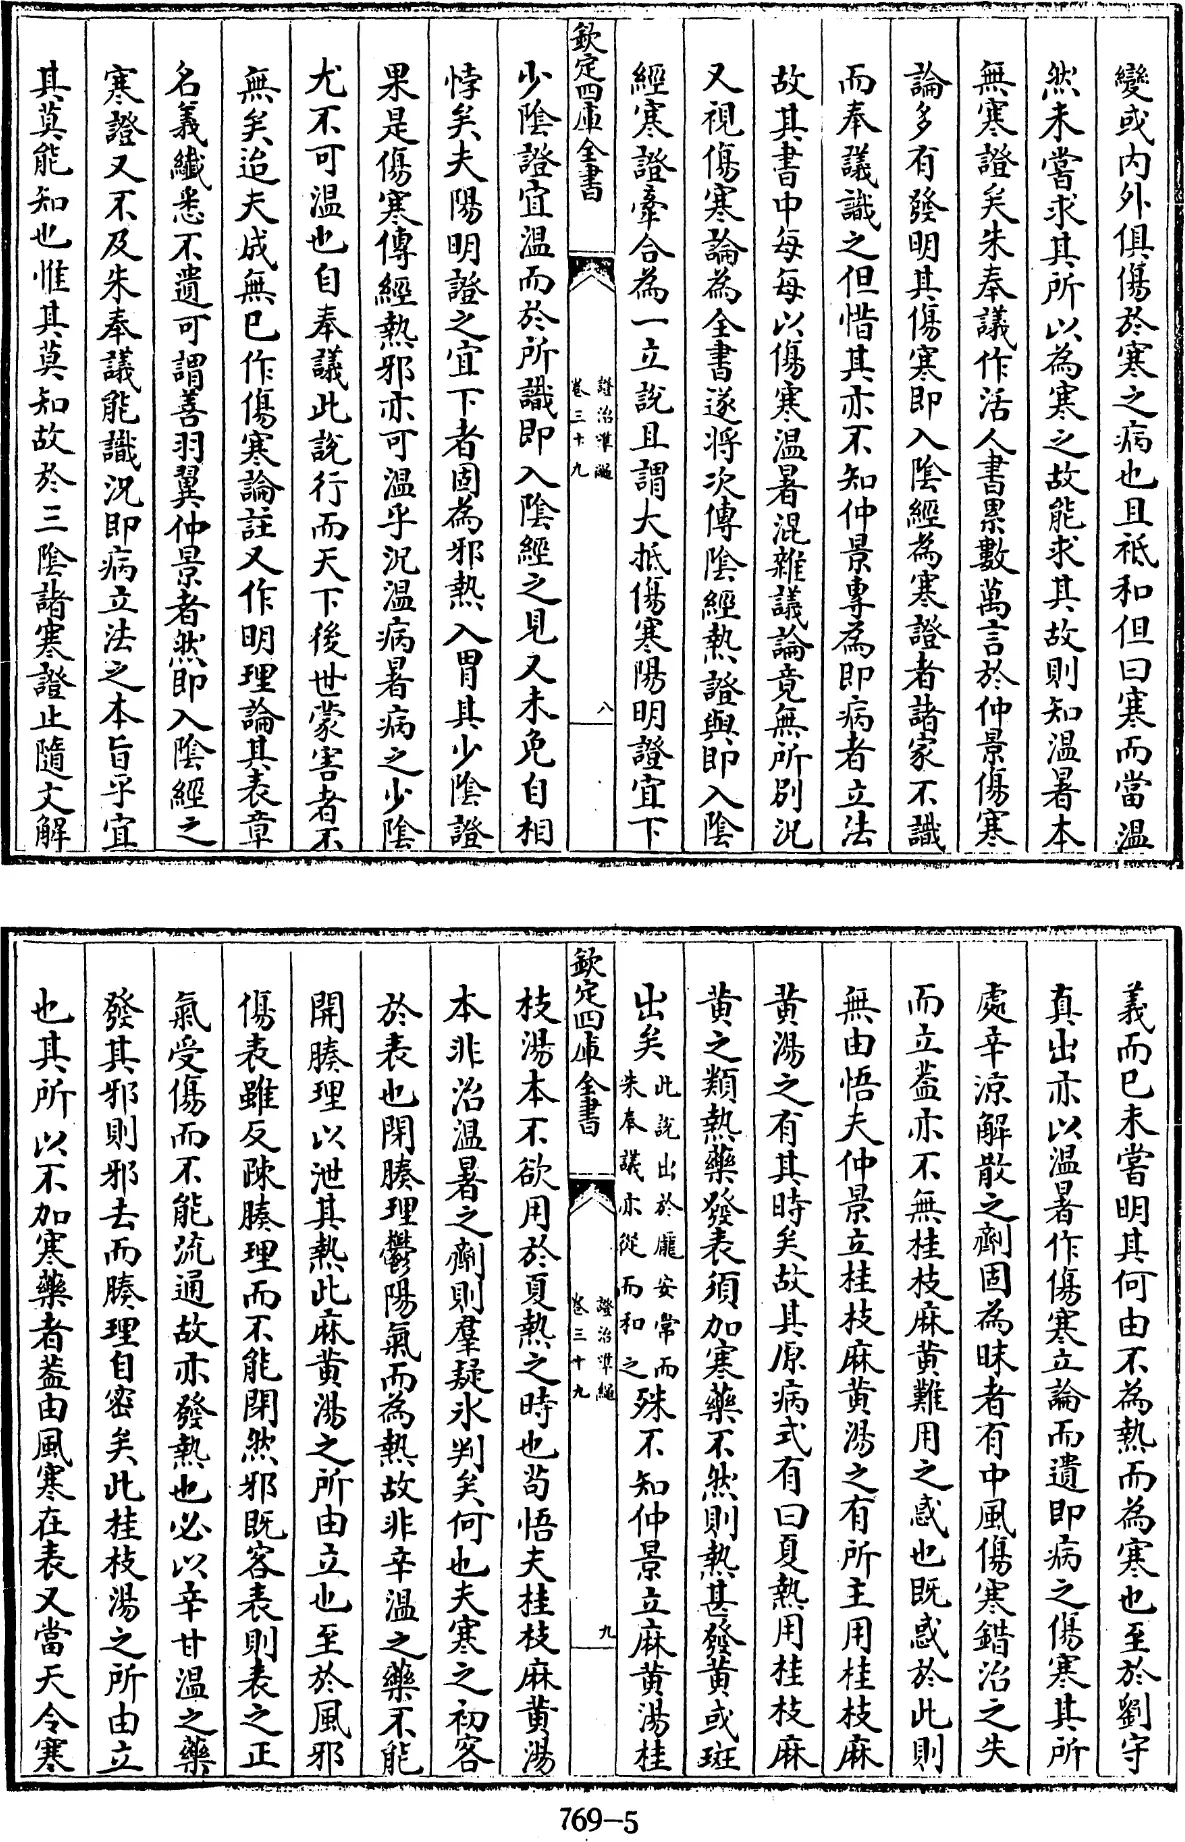 變或内外俱傷於寒之病也且祗和但曰寒而當溫
然未嘗求其所以為寒之故能求其故則知溫暑本
無寒證矣朱奉議作活人書累數萬言於仲景傷寒
論多有發明其傷寒即入陰經為寒證者諸家不識
而奉議識之但惜其亦不知仲景專為即病者立法
故其書中每每以傷寒溫暑混雜議論竟無所別況
又視傷寒論為全書遂將次傳陰經熱證與即入陰
經寒證牽合為一立説且謂大抵傷寒陽明證宜下
欽定四庫全書
證治準繩
卷三十九
八
少陰證宜溫而於所識即入陰經之見又未免自相
悖矣夫陽明證之宜下者固為邪熱入胃其少陰證
果是傷寒傳經熱邪亦可溫乎況溫病暑病之少陰
尤不可溫也自奉議此説行而天下後世蒙害者不
無矣迨夫成無已作傷寒論註又作明理論其表章
名義纎悉不遺可謂善羽翼仲景者然即入陰經之
寒證又不及朱奉議能識況即病立法之本旨乎宜
其莫能知也惟其莫知故於三陰諸寒證止隨文解
義而已未嘗明其何由不為熱而為寒也至於劉守
真出亦以溫暑作傷寒立論而遺即病之傷寒其所
處辛涼解散之劑固為昧者有中風傷寒錯治之失
而立葢亦不無桂枝麻黄難用之惑也既惑於此則
無由悟夫仲景立桂枝麻黄湯之有所主用桂枝麻
黄湯之有其時矣故其原病式有曰夏熱用桂枝麻
黄之類熱藥發表須加寒藥不然則熱甚發黄或斑
出矣此説出於龐安常而朱奉議亦從而和之殊不知仲景立麻黄湯桂
欽定四庫全書
證治準繩
卷三十九
九
枝湯本不欲用於夏熱之時也苟悟夫桂枝麻黄湯
本非治溫暑之劑則羣疑氷判矣何也夫寒之初客
於表也閉腠理鬱陽氣而為熱故非辛溫之藥不能
開腠理以泄其熱此麻黄湯之所由立也至於風邪
傷表雖反疎腠理而不能閉然邪既客表則表之正
氣受傷而不能流通故亦發熱也必以辛甘溫之藥
發其邪則邪去而腠理自密矣此桂枝湯之所由立
也其所以不加寒藥者葢由風寒在表又當天令寒
769-5